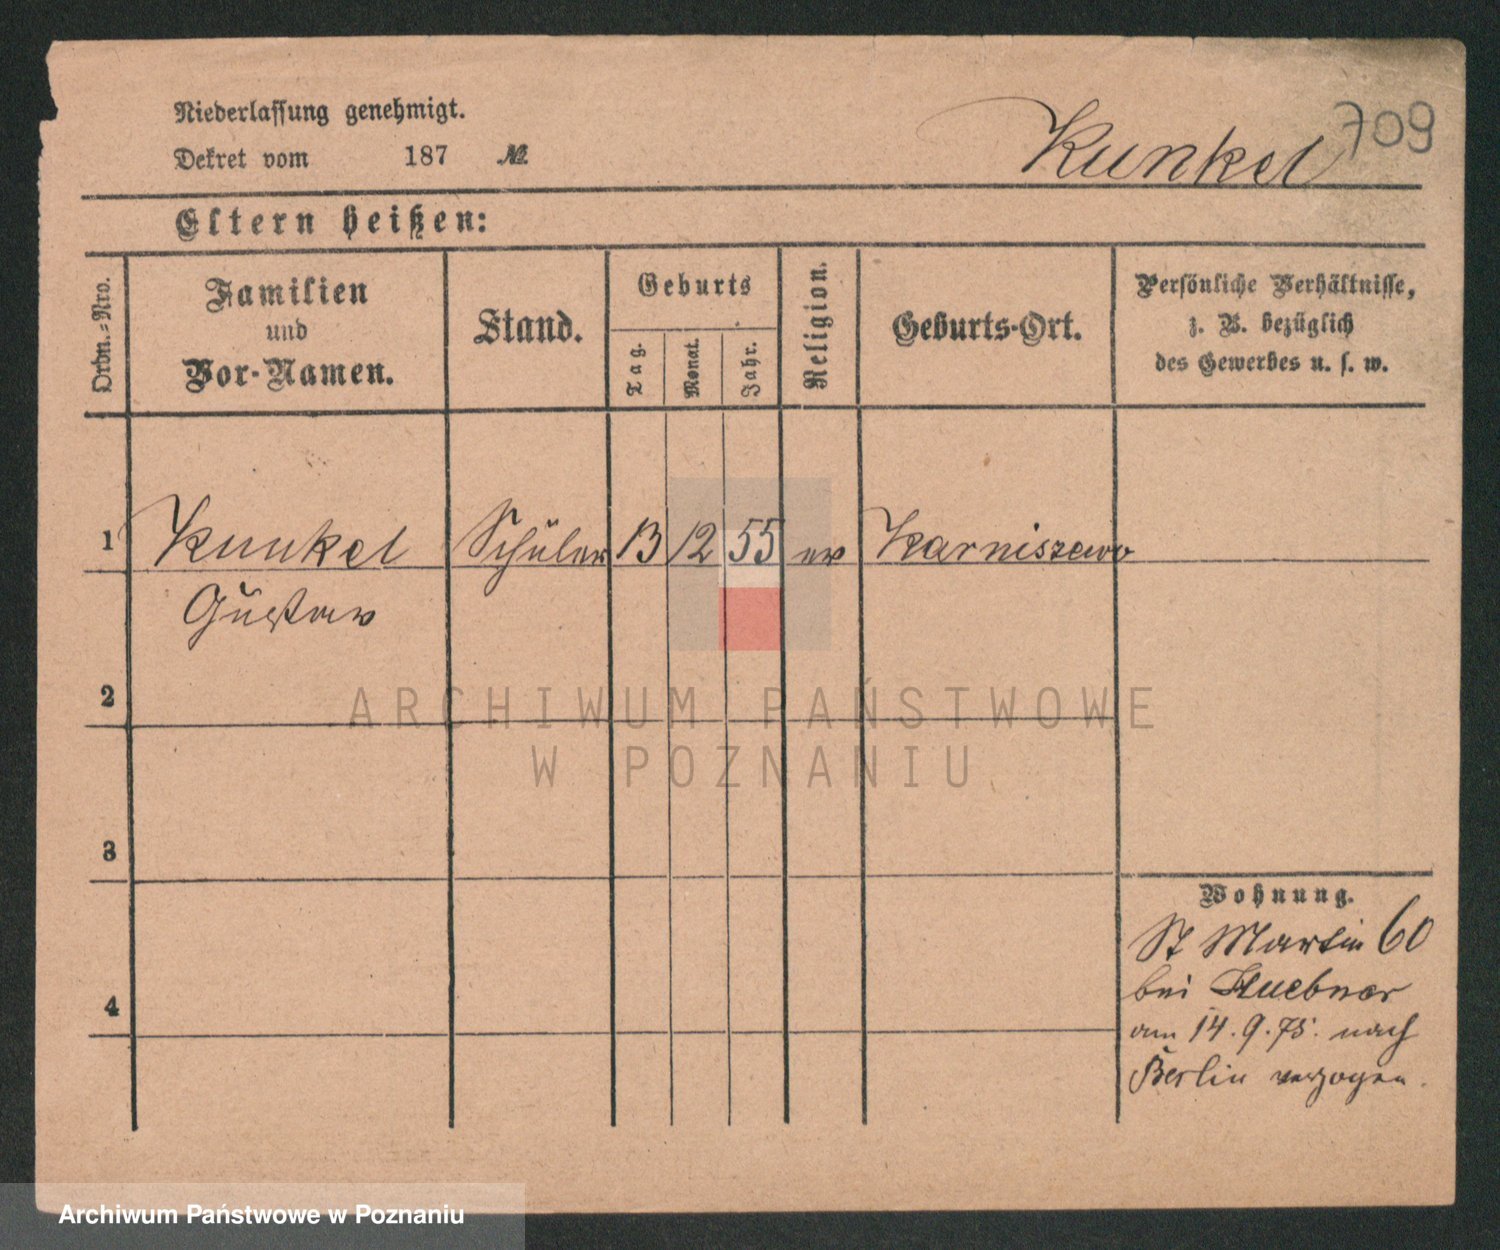 Niederlassung genehmigt.
Dekret vom 187 №
Kunkel 709
Eltern heißen:
Ordn.-Nro.
Familien
und
Vor-Namen.
Stand.
Geburts
Tag.
Monat.
Jahr.
Religion.
Geburts-Ort.
Persönliche Verhältnisse,
z. B. bezüglich
des Gewerbes u. s. w.
1 Kunkel Schüler 13 12 55 ev Karniszewo
Gustav
2
ARCHIWUM PAŃSTWOWE
W POZNANIU
3
Wohnung.
St Martin 60
bei Huebner
4
am 14.9.75. nach
Berlin verzogen.
Archiwum Państwowe w Poznaniu